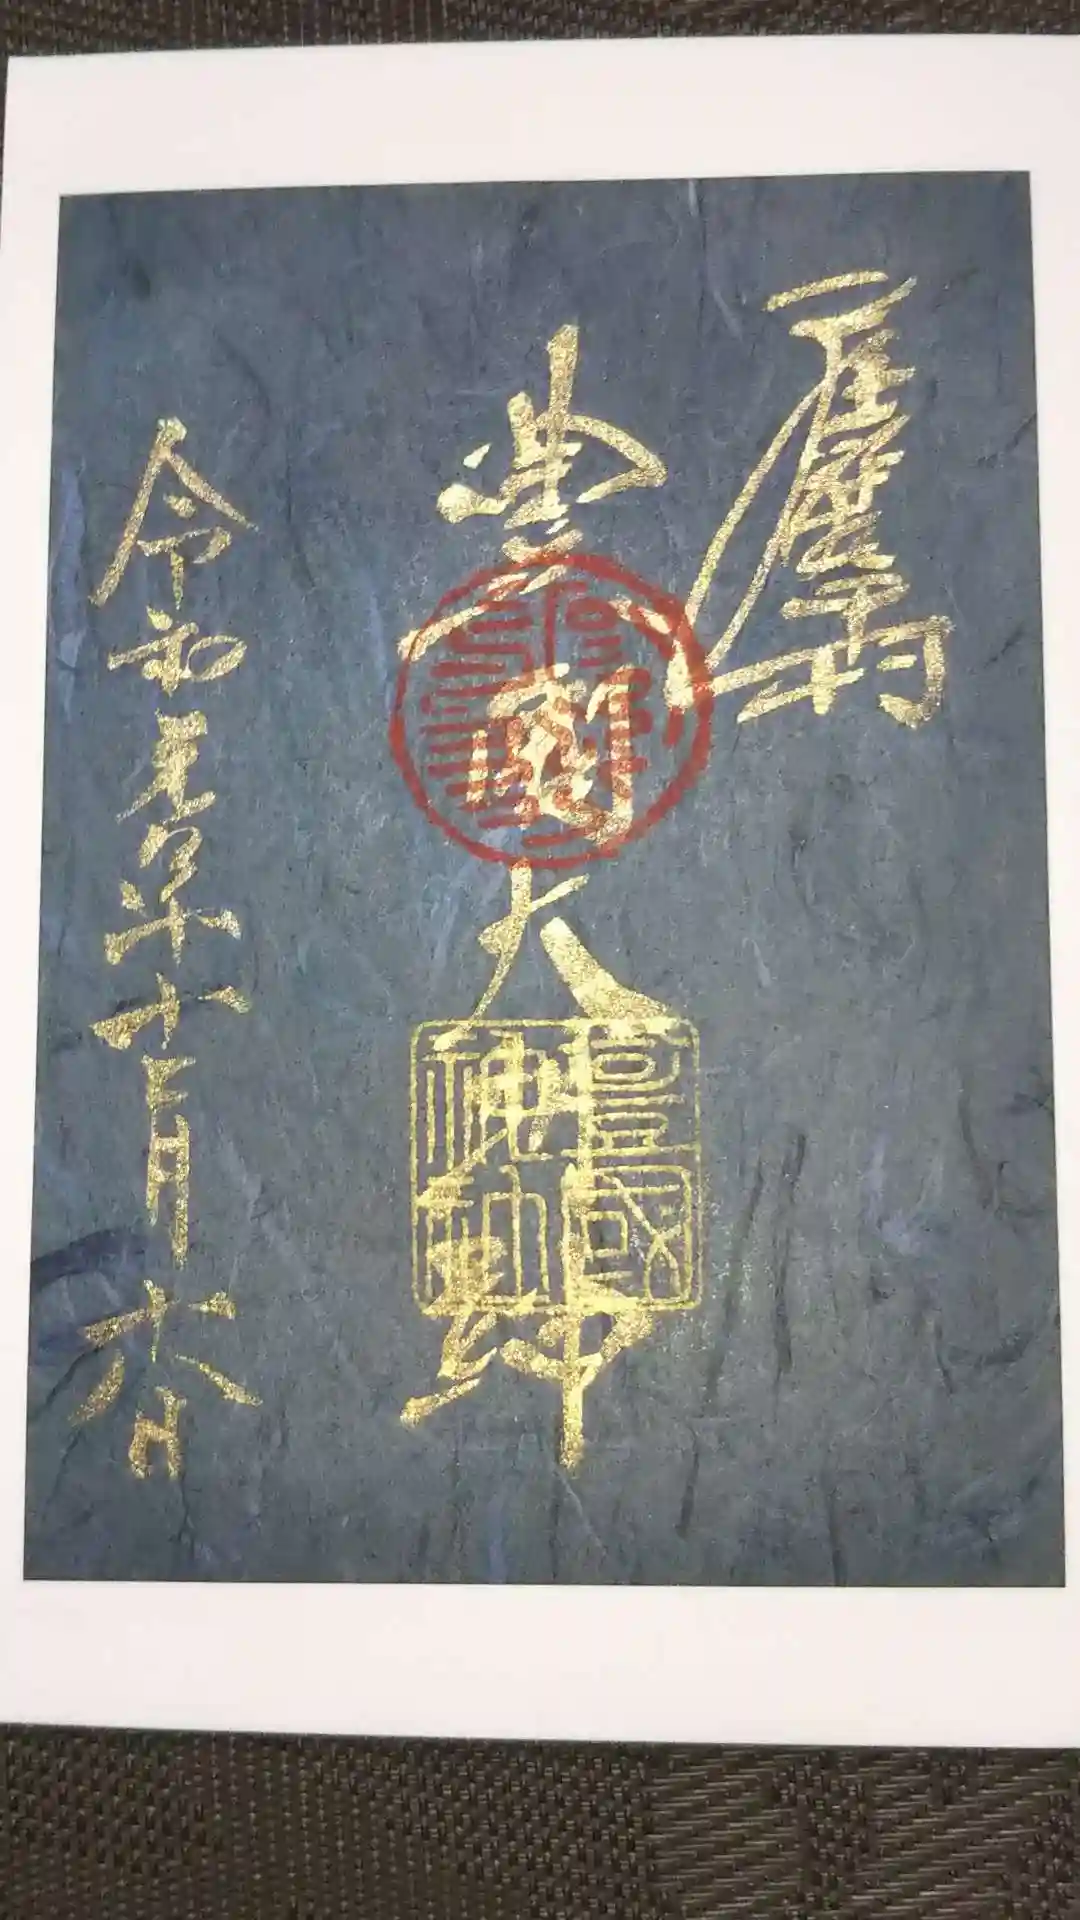 應需
豊國大明神
豐國神社
令和元年十一月六日